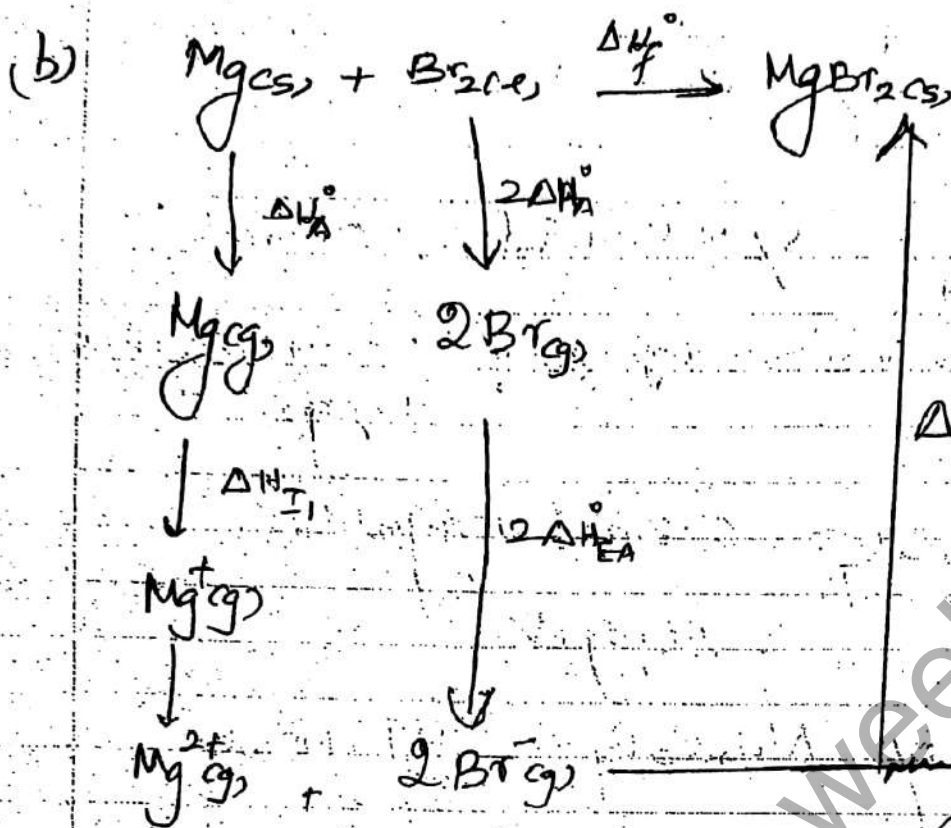 (b) Mg(s) + Br₂(l) ΔH°f MgBr₂(s)
ΔH°A 2ΔH°A
Mg(g) 2Br(g)
ΔH I₁ 2ΔH°EA Δ
Mg⁺(g)
Mg²⁺(g) + 2Br⁻(g)